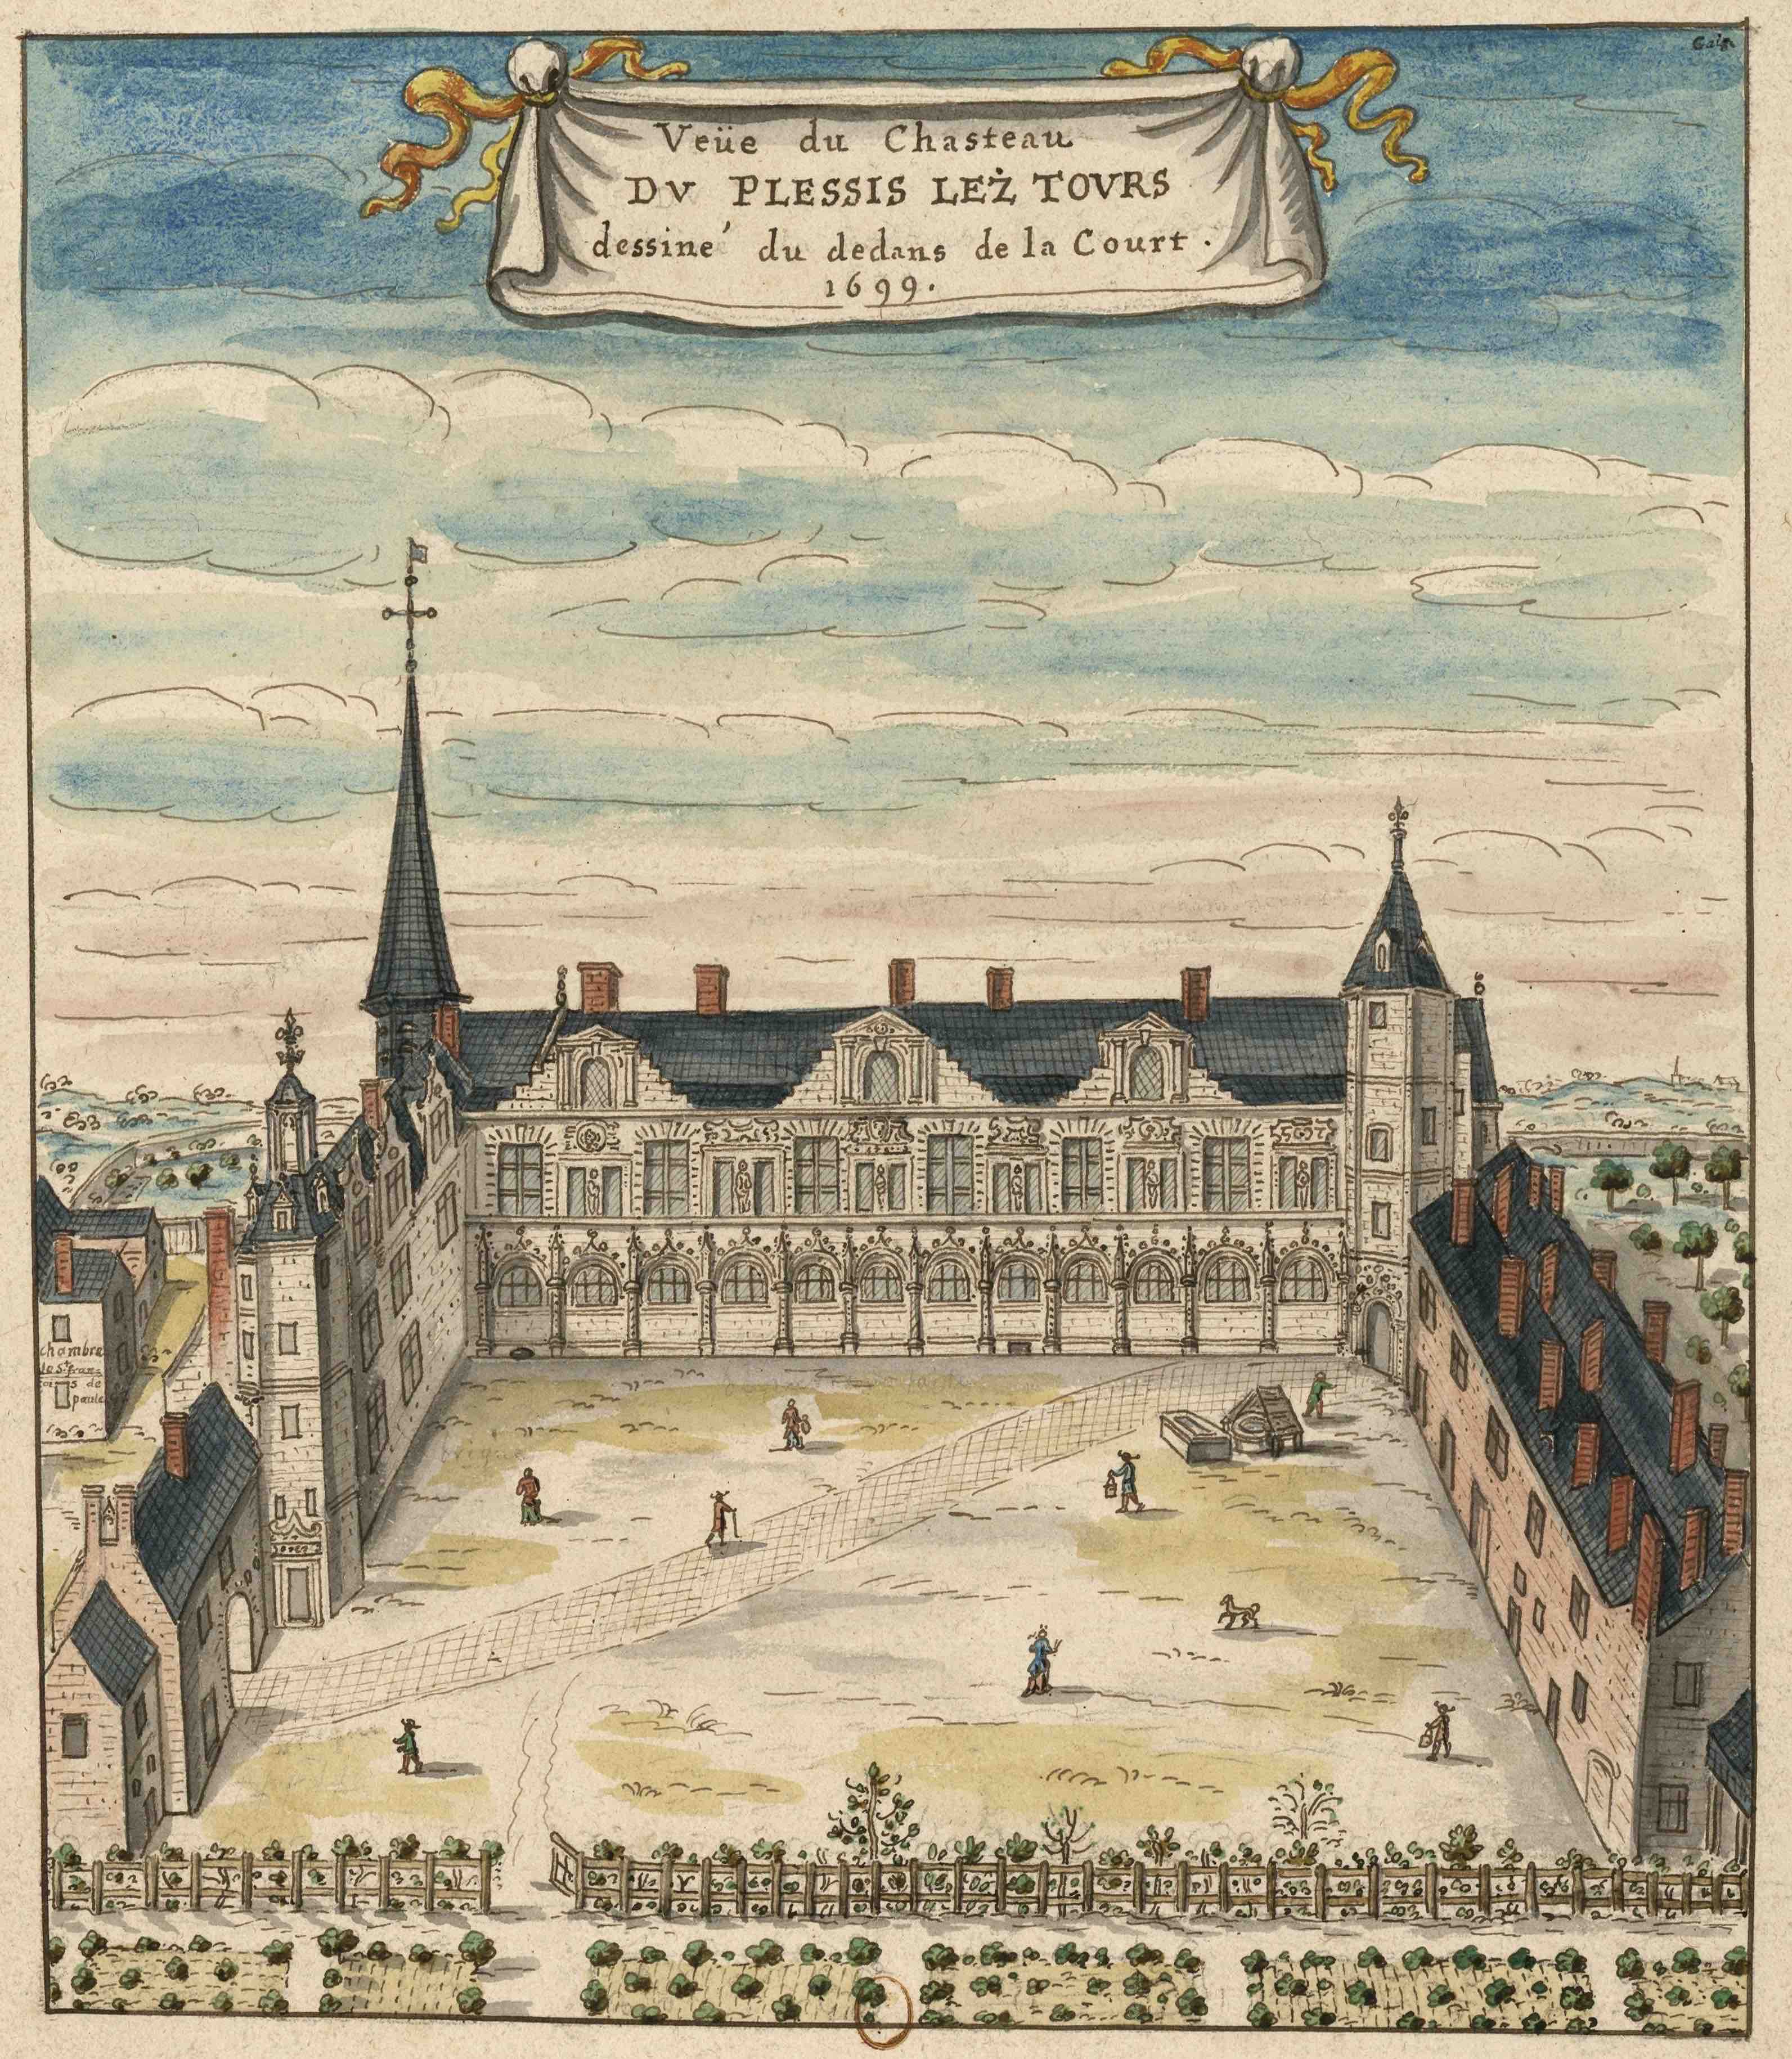 Gaig.
Veüe du Chasteau
DV PLESSIS LEŻ TOVRS
dessiné du dedans de la Court.
1699.
chambre
de St. fran=
cois de
paule